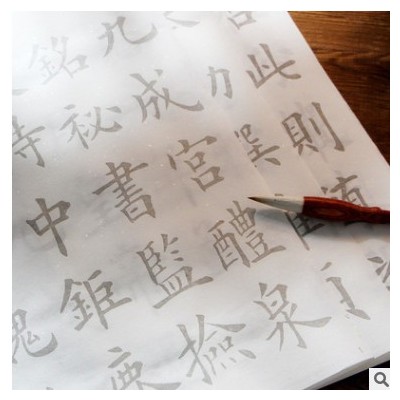 此則
九成宮醴泉
銘祕書監撿
中鉅鹿